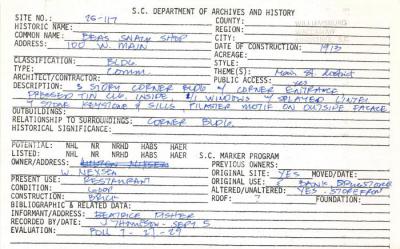 S.C. DEPARTMENT OF ARCHIVES AND HISTORY
SITE NO.: 26-117 COUNTY: WILLIAMSBURG
HISTORIC NAME: REGION:
COMMON NAME: BEAS SNACK SHOP CITY:
ADDRESS: 100 W. MAIN DATE OF CONSTRUCTION: 1913
ACREAGE:
CLASSIFICATION: BLDG. STYLE:
TYPE: Comm. THEME(S): Main St. District
ARCHITECT/CONTRACTOR: PUBLIC ACCESS: yes
DESCRIPTION: 3 STORY CORNER BLDG W/ CORNER ENTRANCE
PRESSED TIN CLG. INSIDE 1/1 WINDOWS W/ SPLAYED LINTEL
& STONE KEYSTONE & SILLS. PILASTER MOTIF ON OUTSIDE FACADE
OUTBUILDINGS:
RELATIONSHIP TO SURROUNDINGS: CORNER BLDG.
HISTORICAL SIGNIFICANCE:
POTENTIAL: NHL NR NRHD HABS HAER
LISTED: NHL NR NRHD HABS HAER S.C. MARKER PROGRAM
OWNER/ADDRESS: PREVIOUS OWNERS:
W. NEXSEN ORIGINAL SITE: YES MOVED/DATE:
PRESENT USE: RESTAURANT ORIGINAL USE: BANK DRUGSTORE
CONDITION: GOOD ALTERED/UNALTERED: YES - STOREFRONT
CONSTRUCTION: BRICK ROOF: ? FOUNDATION:
BIBLIOGRAPHIC & RELATED DATA:
INFORMANT/ADDRESS: BEATRICE FISHER
RECORDED BY/DATE: J. THOMSON - SEPT 5
EVALUATION: ROLL 7 - 27-29